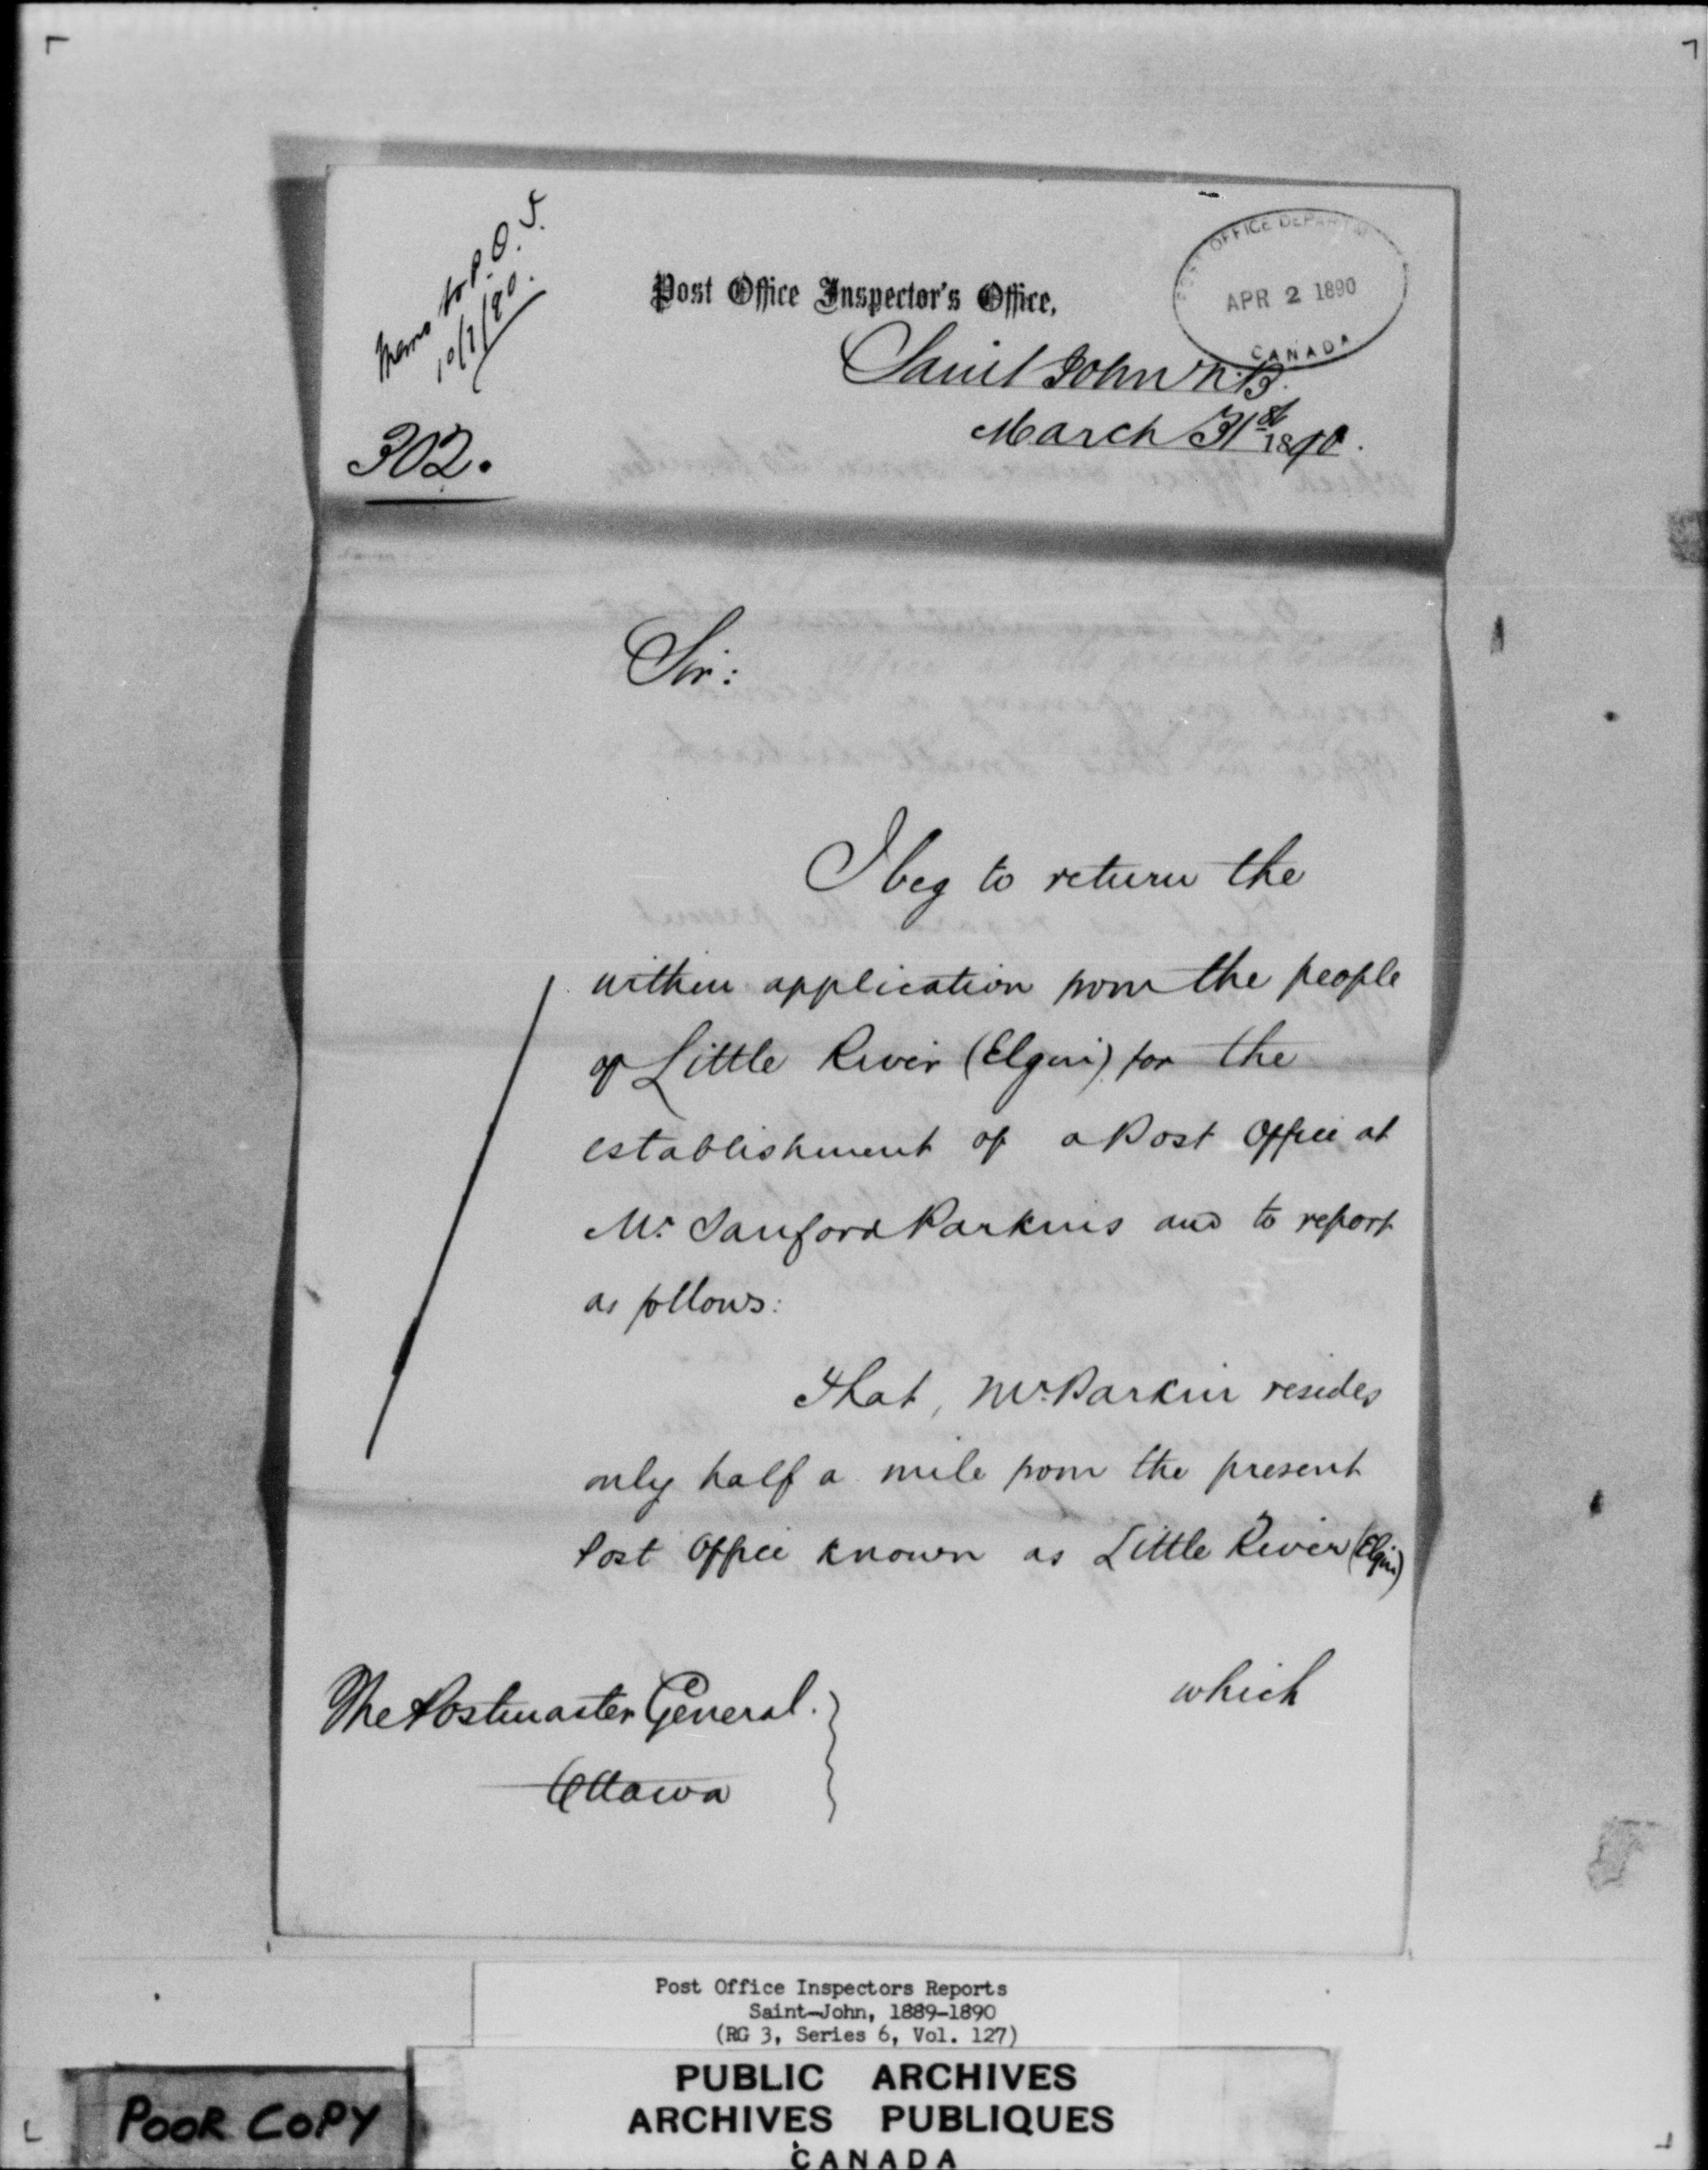 Memo to P.O.I.
10/7/90.
Post Office Inspector's Office,
POST OFFICE DEPARTM
APR 2 1890
CANADA
Saint John N.B.
March 31st 1890.
302.
Sir:
I beg to return the
within application from the people
of Little River (Elgin) for the
establishment of a Post Office at
Mr. Sanford Parkins and to report
as follows:
That, Mr. Parkin resides
only half a mile from the present
Post Office known as Little River (Elgin)
which
The Postmaster General.
Ottawa
Post Office Inspectors Reports
Saint-John, 1889-1890
(RG 3, Series 6, Vol. 127)
PUBLIC ARCHIVES
ARCHIVES PUBLIQUES
CANADA
POOR COPY